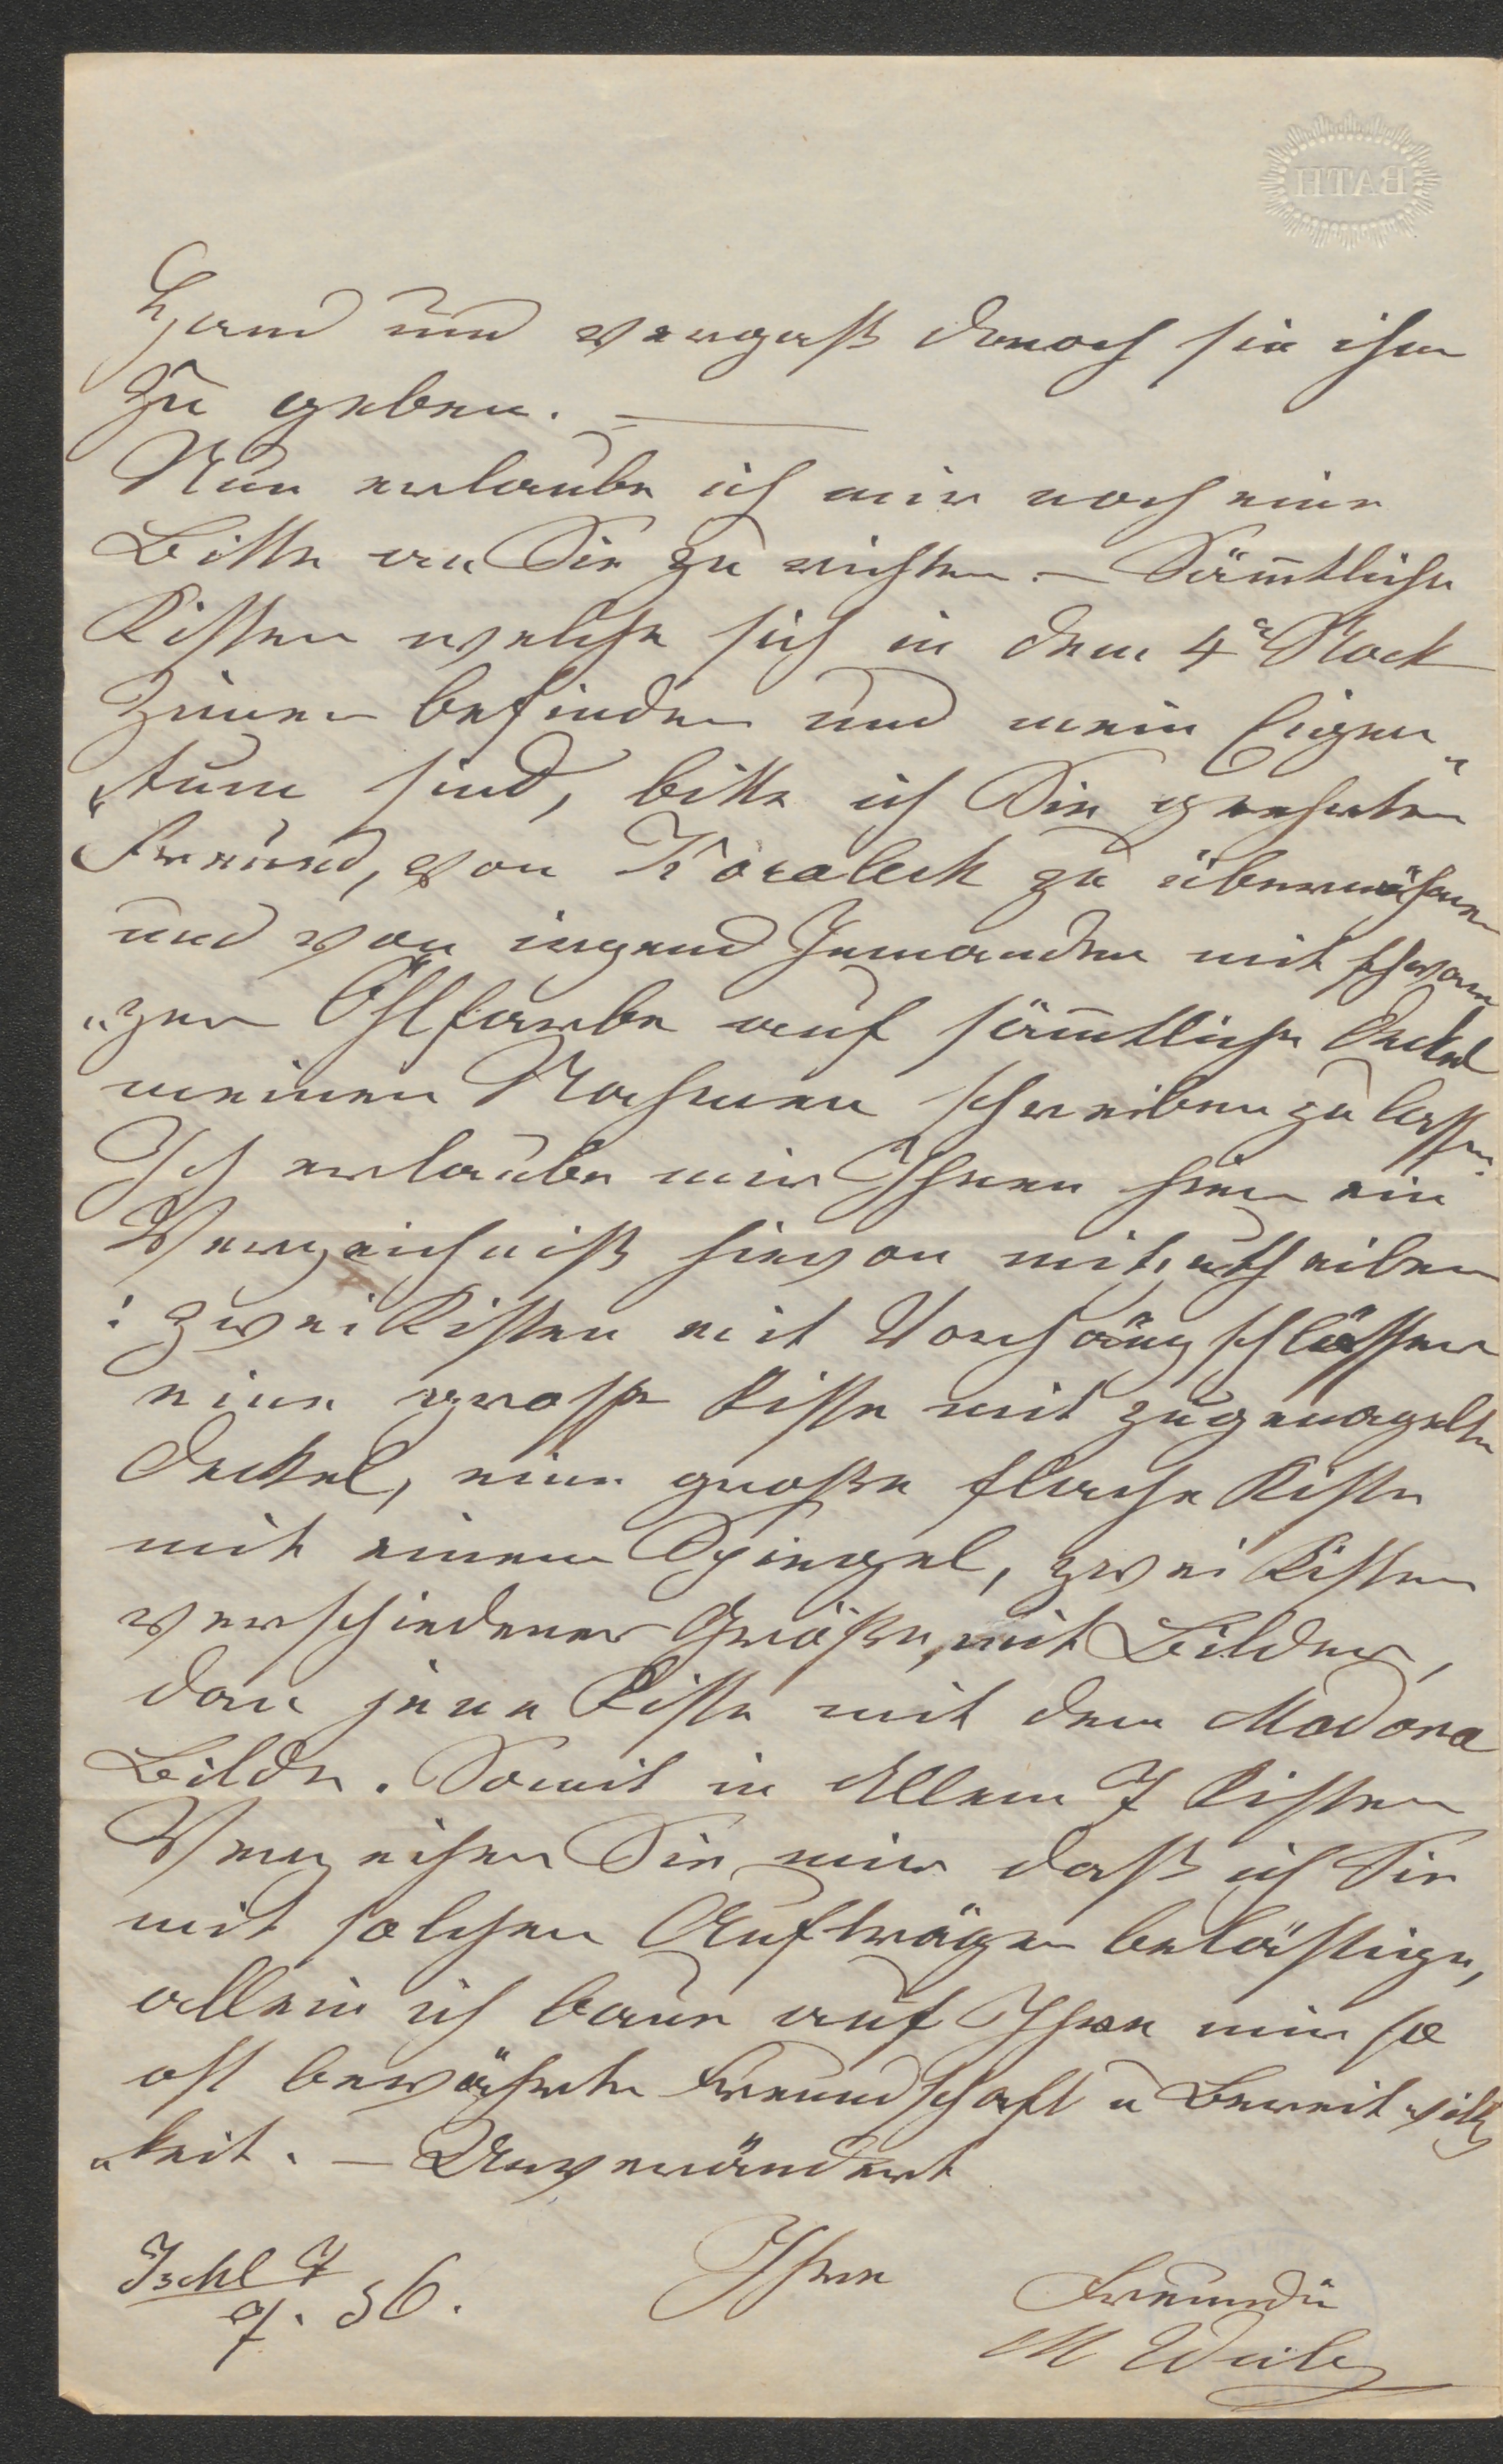 BATH
Hand und vergaß denoch sie ihm
zu geben. —
Nun erlaube ich mir noch eine
Bitte an Sie zu richten. — Sämtliche
Kisten welche sich in dem 4ͭ Stock
Zimer befinden und mein Eigen„
„tum sind, bitte ich Sie geehrter
Freund, von Koraleck zu übernehmen
und von irgend Jemanden mit schwar„
„zer Öhlfarbe auf sämtliche Deckel
meinen Nahmen schreiben zu lassen.
Ich erlaube mir Ihnen hier ein
Verzeichniß hievon mitzutheilen
: zwei Kisten mit Vorhängschlössern
eine große Kiste mit zugenagelten
Deckel, eine große flache Kiste
mit einem Spiegel, zwei Kisten
verschiedener Größe, mit Bilder,
dan jene Kiste mit dem Madona
Bilde. Somit in Allem 7 Kisten
Verzeihen Sie mir daß ich Sie
mit solchen Aufträgen belästige,
allein ich baue auf Ihre mir so
oft bewährte Freundschaft u Bereitwillig
„keit. — Unverändert
Ihre
Freundin
Ischl 7/7. 86.
M Weil